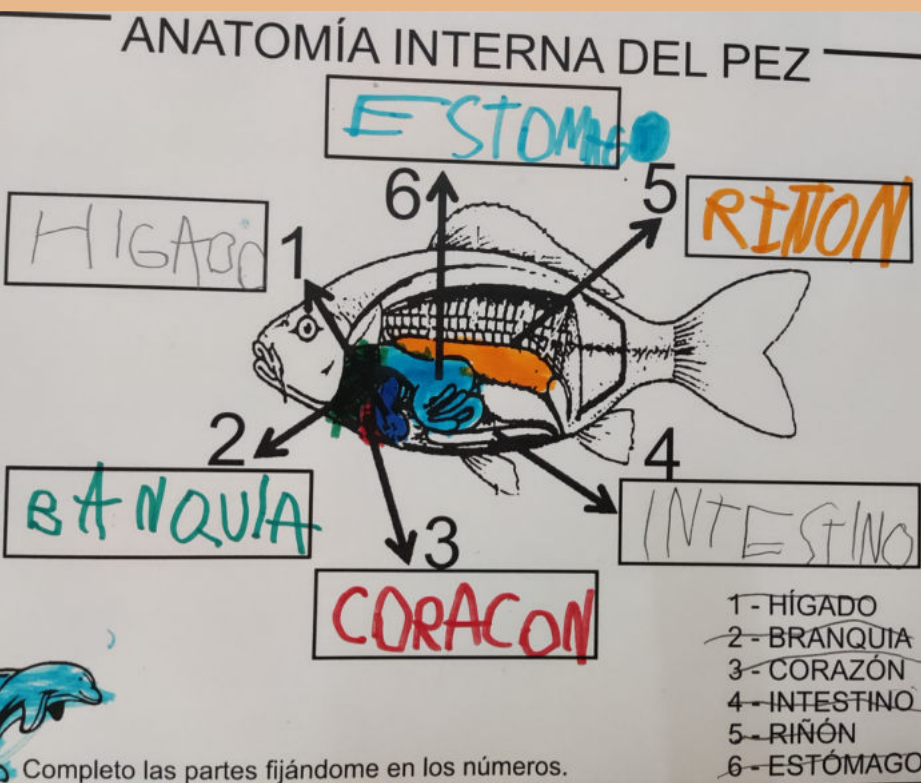 ANATOMÍA INTERNA DEL PEZ
ESTOMAGO
6
5
RIÑON
HIGADO
1
2
BANQUIA
3
CORACON
4
INTESTINO
1 - HÍGADO
2 - BRANQUIA
3 - CORAZÓN
4 - INTESTINO
5 - RIÑÓN
6 - ESTÓMAGO
Completo las partes fijándome en los números.